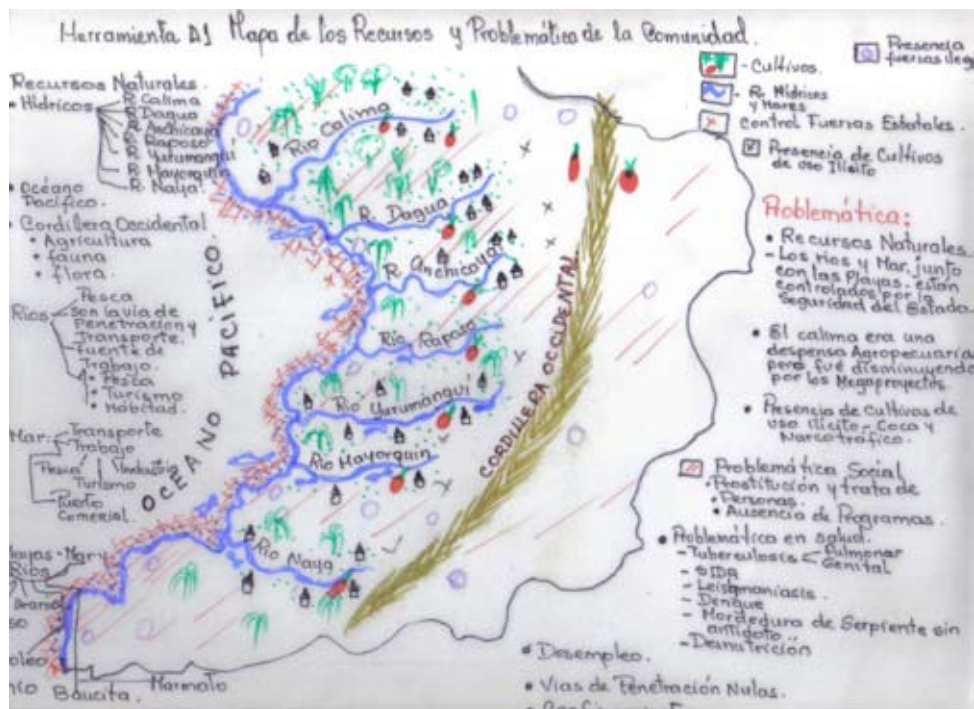 Herramienta A1 Mapa de los Recursos y Problemática de la Comunidad.
Recursos Naturales.
• Hídricos
R. Calima
R. Dagua
R. Anchicaya
R. Raposo
R. Yurumangui
R. Mayorquin
R. Naya.
• Océano
Pacífico.
• Cordillera Occidental
• Agricultura
• fauna
• flora.
Rios
Pesca
Son la vía de
Penetración y
Transporte.
fuente de
Trabajo.
• Pesca
• Turismo
• Habitad.
Mar.
Transporte
Trabajo
Pesca
Industria
Turismo
Puerto
Comercial.
Mar y
Ribs
Baucita.
Marmato
OCEANO PACÍFICO.
Rio Calima
R. Dagua
R. Anchicaya
Rio Raposo
Rio Yurumangui
Rio Mayorquin
Rio Naya
CORDILLERA OCCIDENTAL
- Cultivos.
- R. Hídricos
y Mares
Control Fuerzas Estatales.
Presencia de Cultivos
de uso Ilícito
Presencia
fuerzas
Problemática:
• Recursos Naturales.
- Los rios y Mar, junto
con las Playas están
controlados por la
Seguridad del Estado
• El calima era una
despensa Agropecuaria
pero fué disminuyendo
por los Megaproyectos.
• Presencia de Cultivos de
uso ilícito - Coca y
Narcotráfico.
Problemática Social
• Prostitución y trata de
Personas.
• Ausencia de Programas.
• Problemática en salud.
- Tuberculosis
Pulmonar
Genital
- SIDA
- Leismaniasis.
- Dengue
- Mordedura de Serpiente sin
antídoto.
- Desnutrición
• Desempleo.
• Vías de Penetración Nulas.